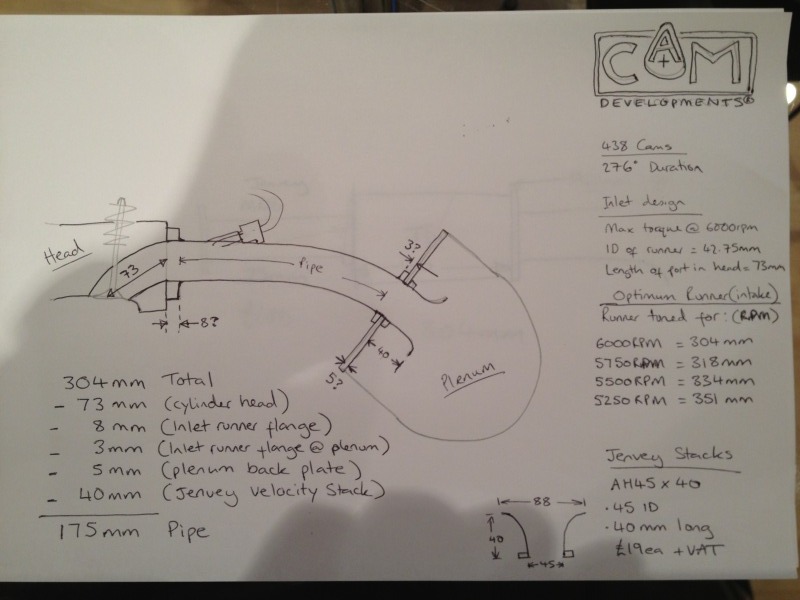 CAM
DEVELOPMENTS®
438 Cams
276° Duration
Inlet design
Max torque @ 6000rpm
ID of runner = 42.75mm
Length of port in head = 73mm
Optimum Runner (intake)
Runner tuned for: (RPM)
6000RPM = 304 mm
5750RPM = 318 mm
5500RPM = 334 mm
5250RPM = 351 mm
Jenvey Stacks
AH45 x 40
·45 ID
·40mm long
£19ea + VAT
Head
73
Pipe
3?
8?
40
5?
Plenum
304mm Total
- 73 mm (cylinder head)
- 8 mm (Inlet runner flange)
- 3mm (Inlet runner flange @ plenum)
- 5 mm (plenum back plate)
- 40mm (Jenvey Velocity Stack)
175mm Pipe
88
40
45